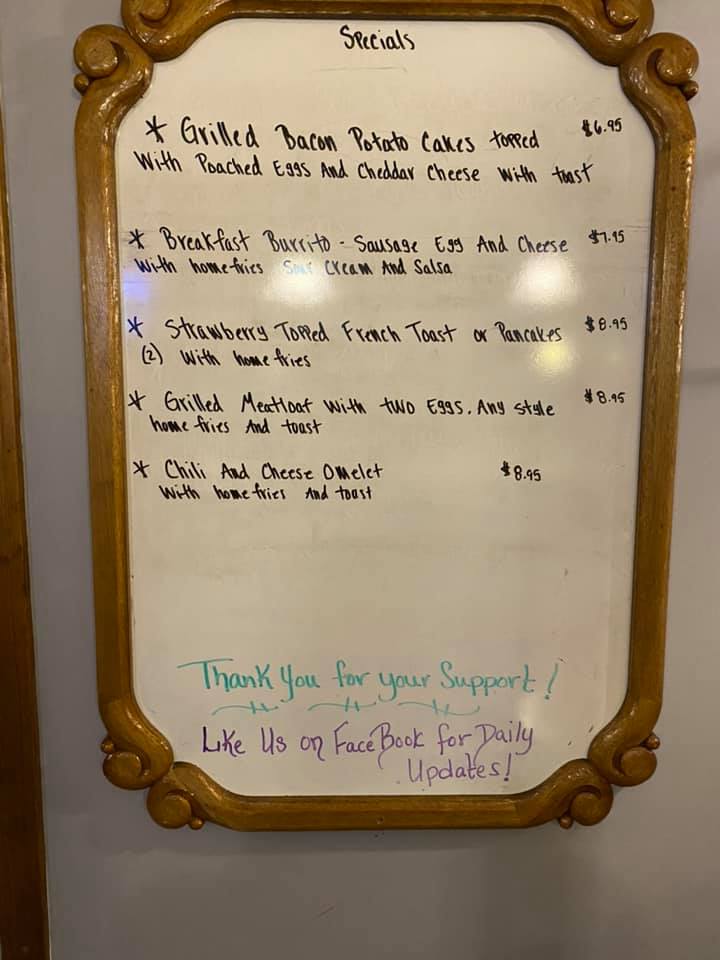 Specials
* Grilled Bacon Potato Cakes topped $6.95
With Poached Eggs And Cheddar Cheese With toast
* Breakfast Burrito - Sausage Egg And Cheese $7.95
With home fries Sour Cream And Salsa
* Strawberry Topped French Toast or Pancakes $8.95
(2) With home fries
* Grilled Meatloaf With two Eggs. Any Style $8.95
home fries And toast
* Chili And Cheese Omelet $8.95
With home fries And toast
Thank You for your Support!
Like Us on FaceBook for Daily
Updates!